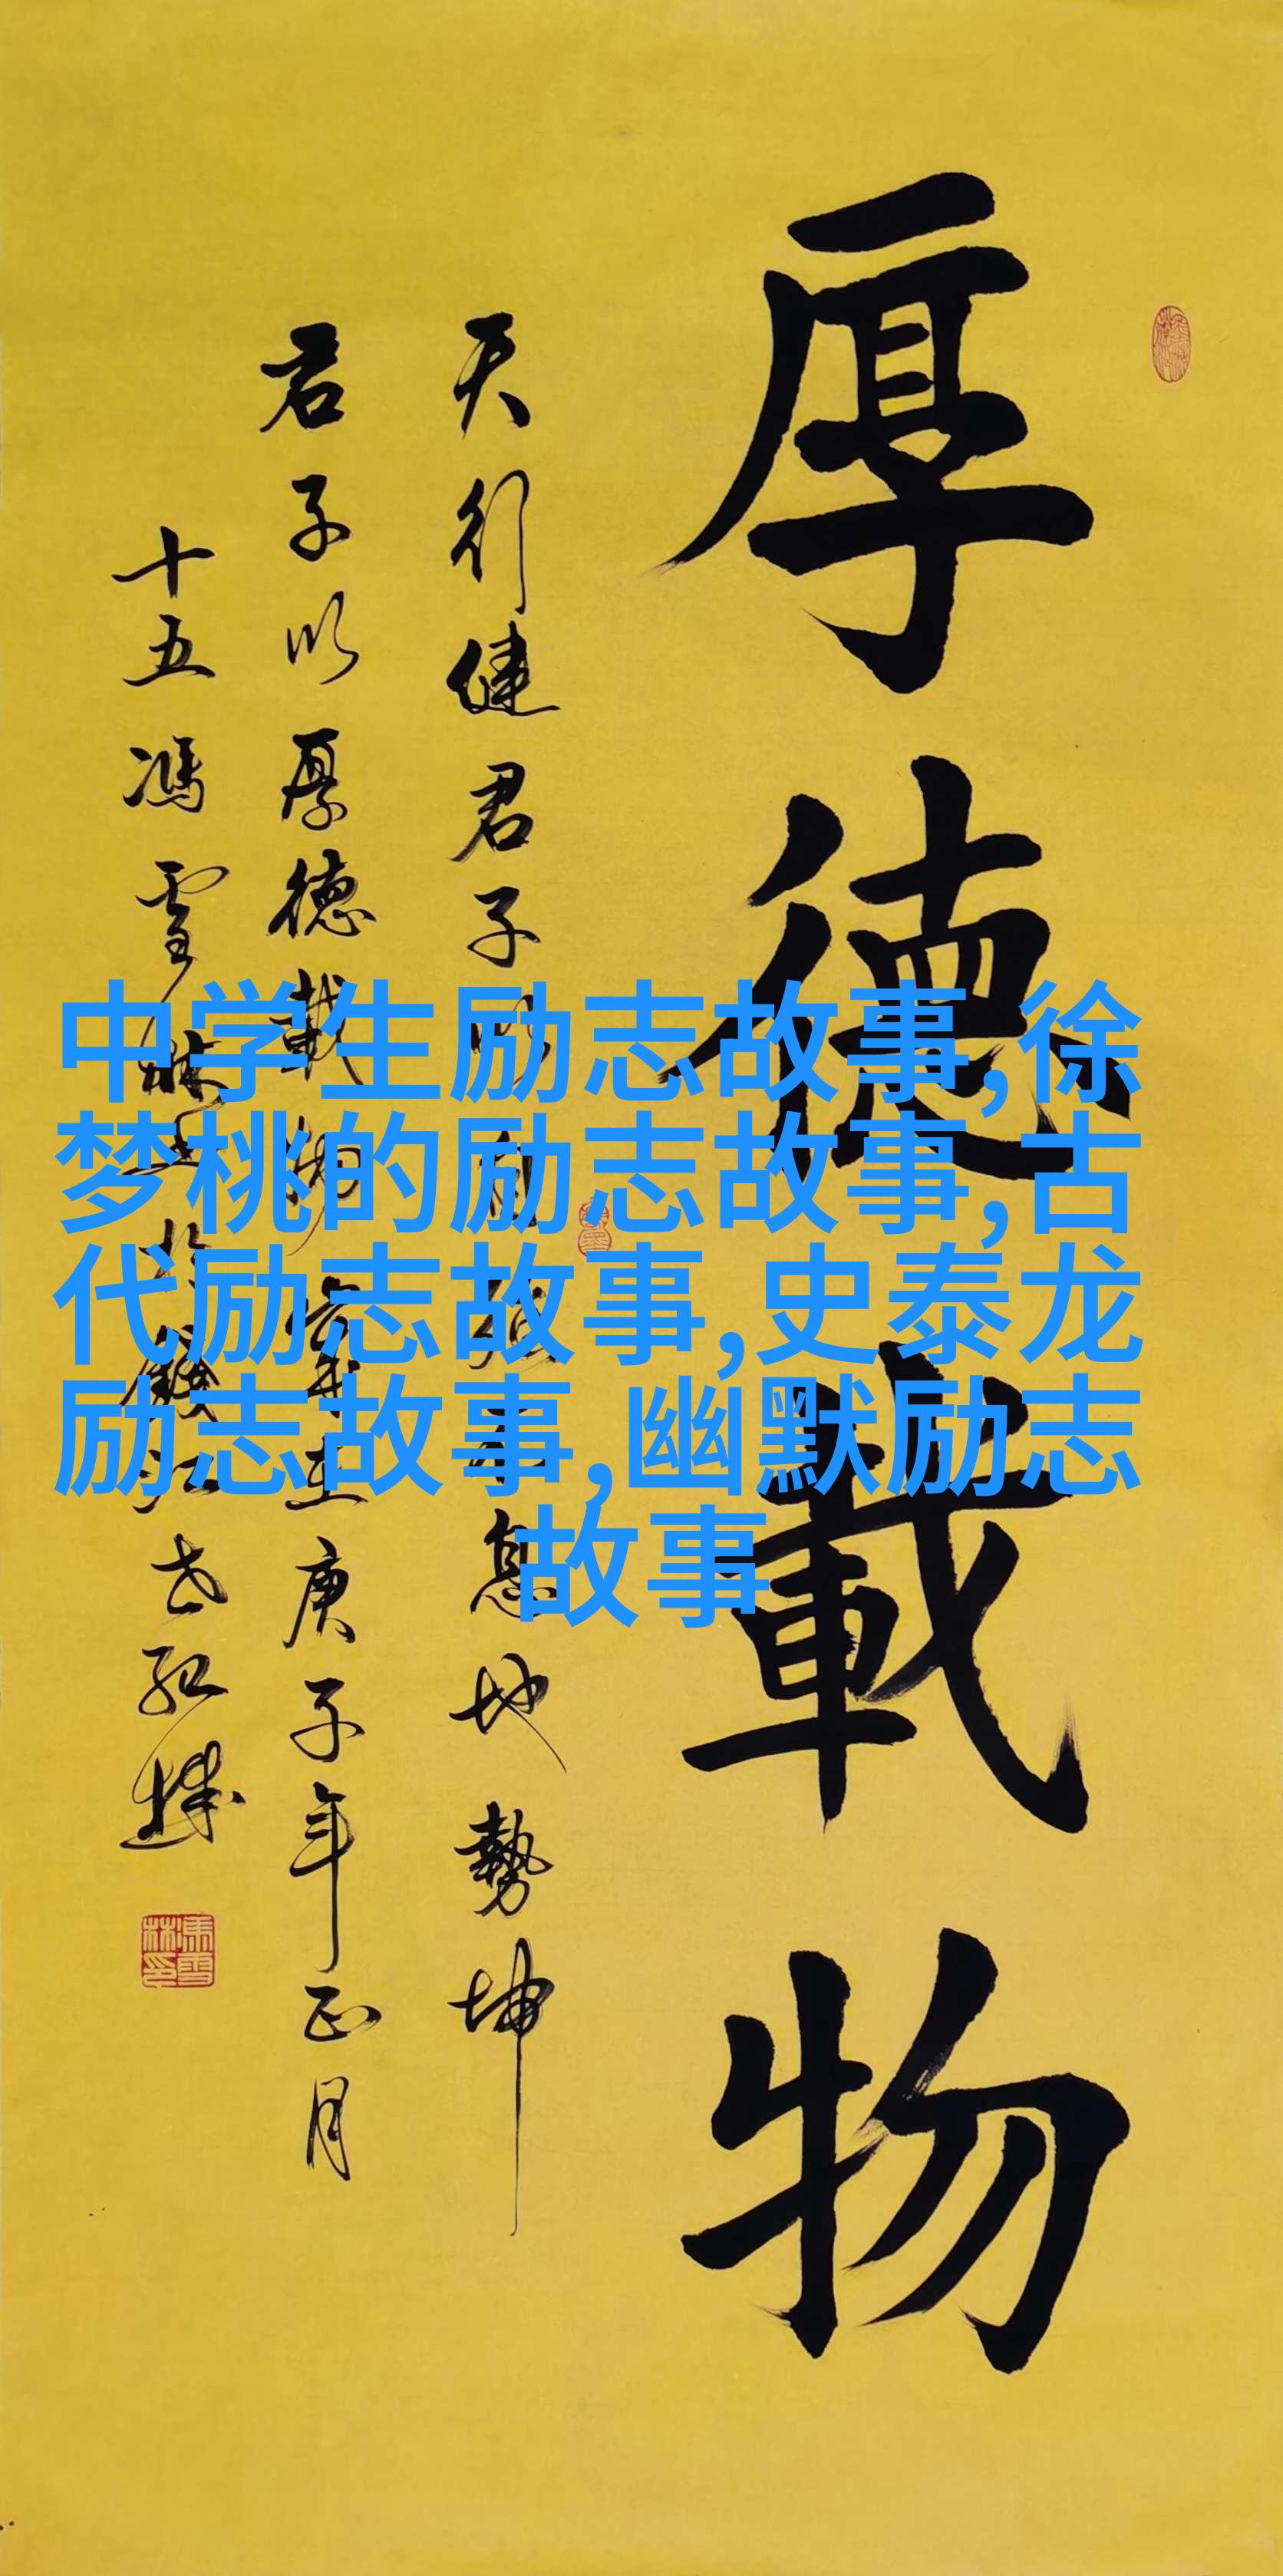 厚德載物
天行健君子以自强不息地勢坤
君子以厚德載物 庚子年正月
十五馮雪林
中学生励志故事,徐
梦桃的励志故事,古
代励志故事,史泰龙
励志故事,幽默励志
故事
馮雪林印